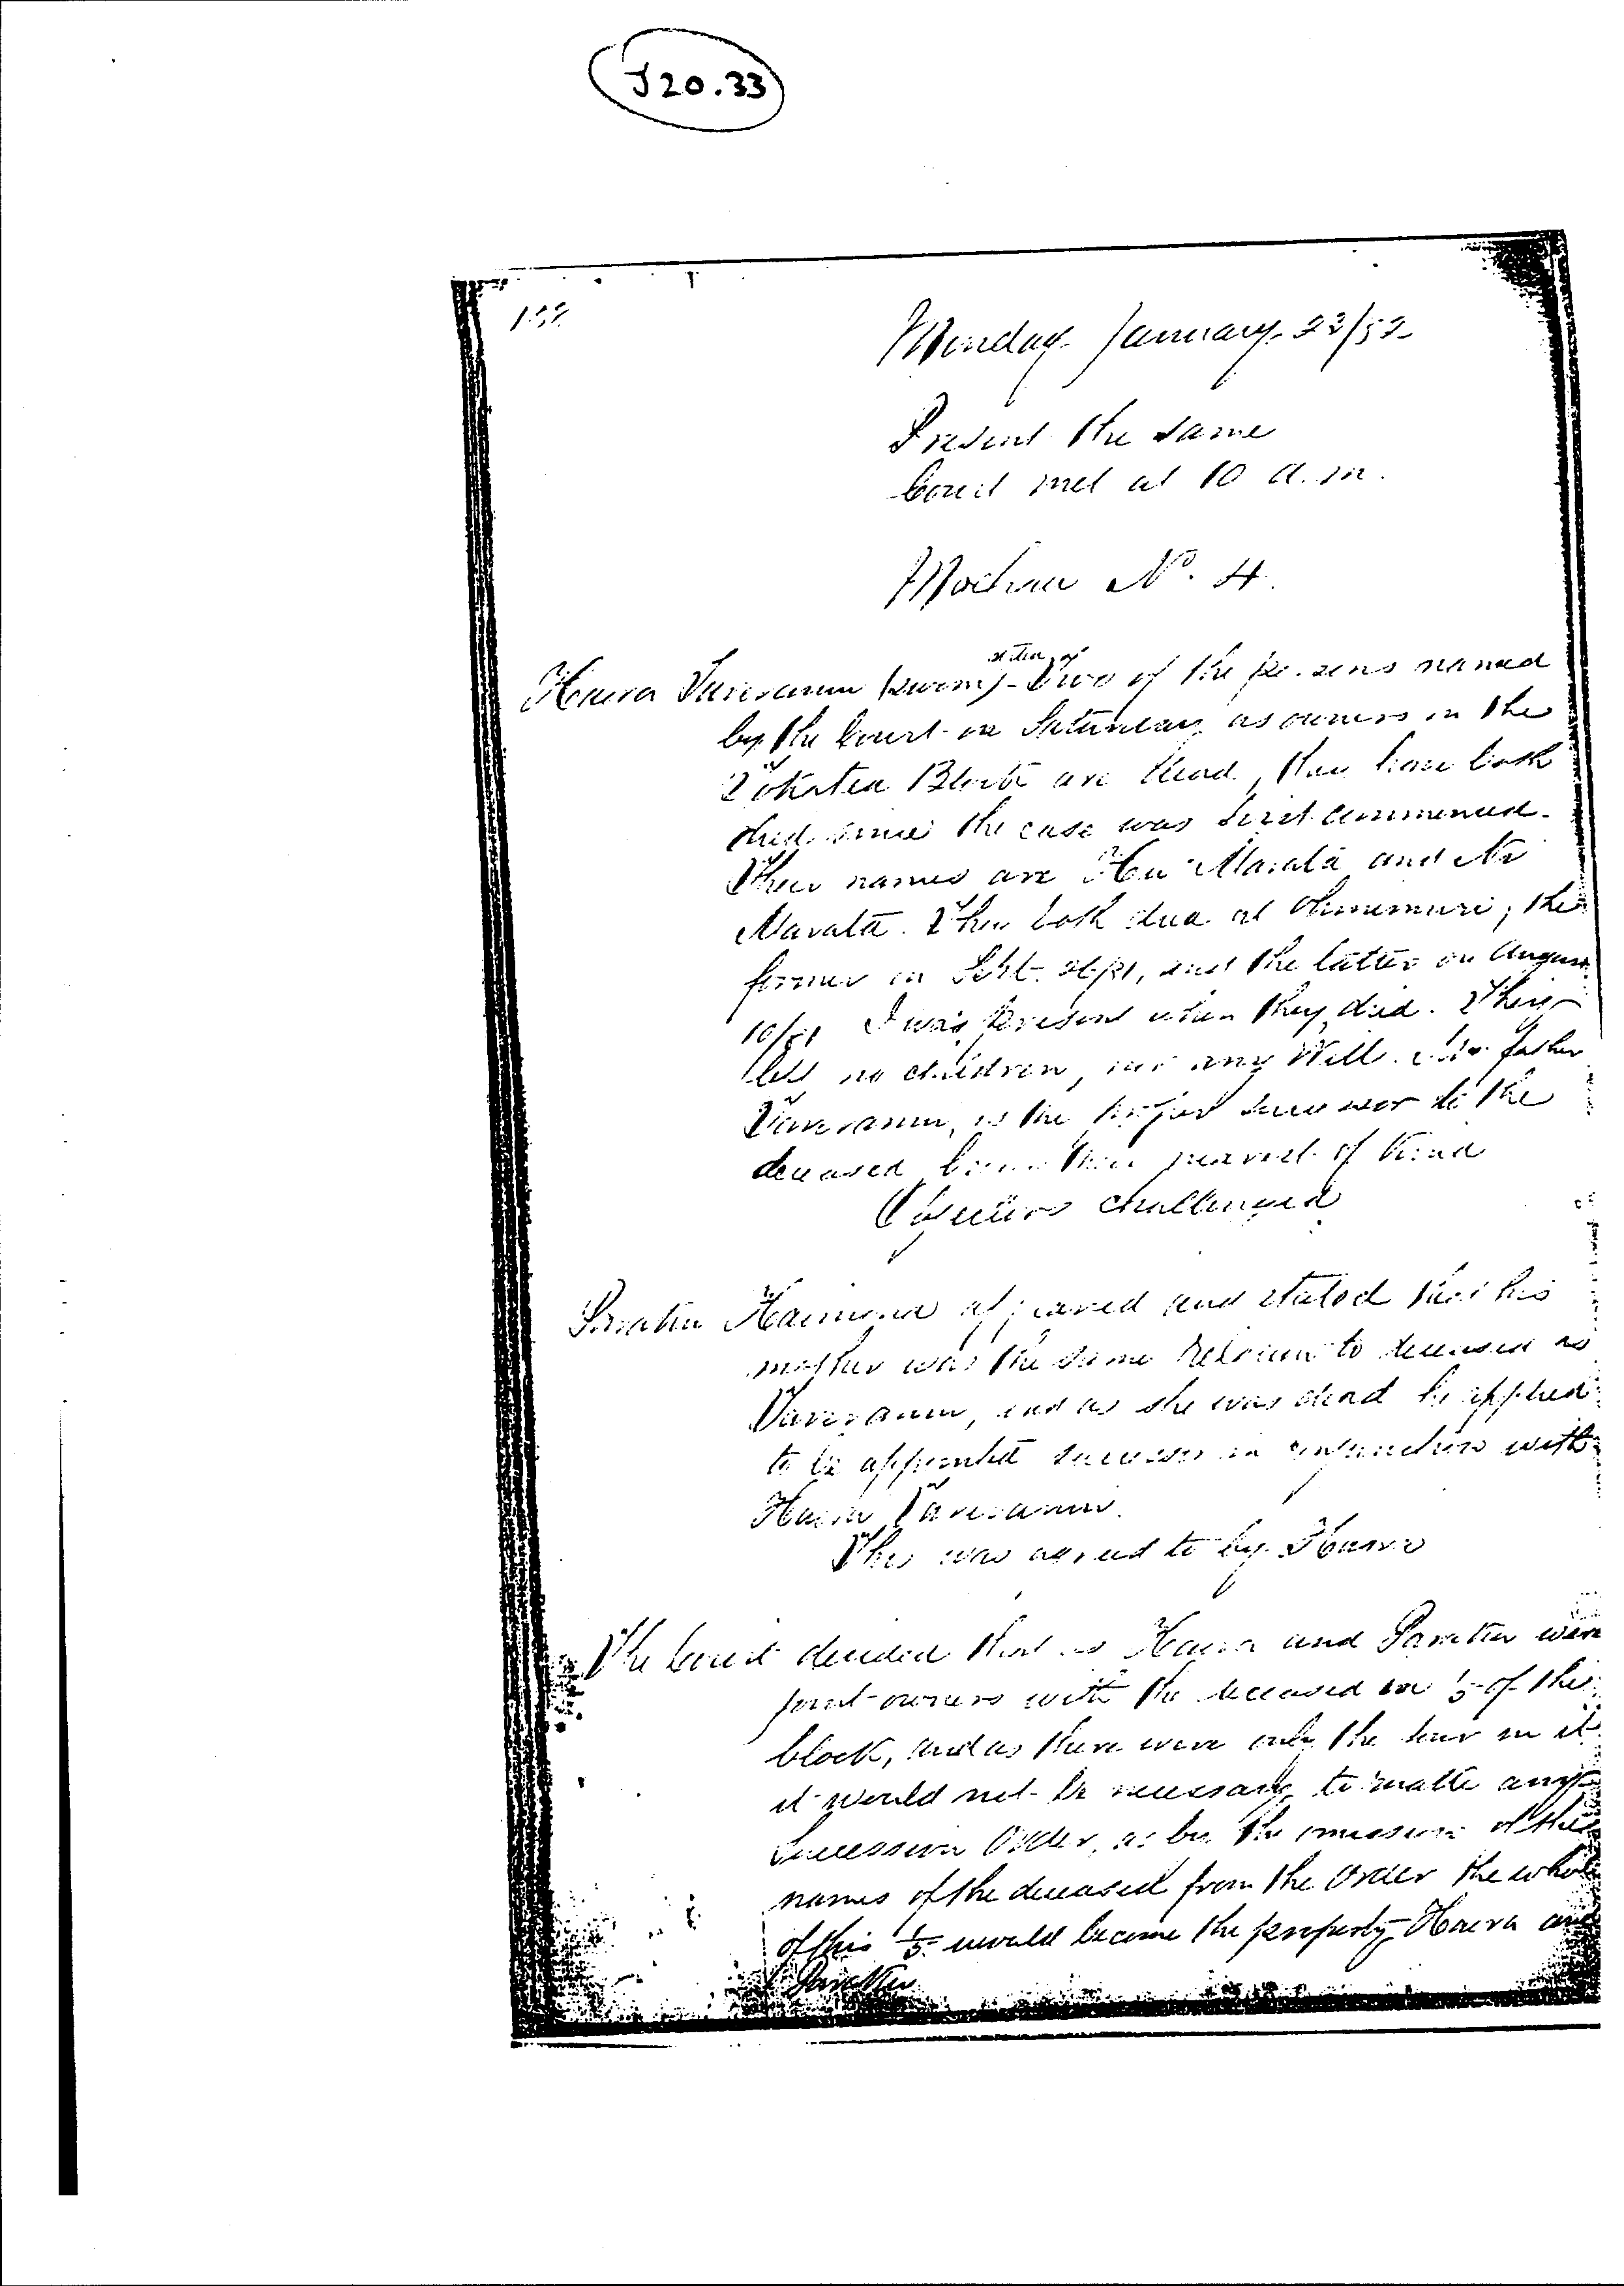 J20.33
Monday January 23/82
Present the same
Court met at 10 a.m.
Moehau No. 4.
Haora Tareranui (sworn) - Two of the persons named
by the Court on Saturday as owners in the
Block are dead, they have both
died since the case was first commenced.
Their names are and
both died at Ohinemuri, the
former on Sept. and the latter on August
10/81 I was present when they died. They
left no children, nor any Will. father
Tareranui, is the proper successor to the
deceased being their nearest of kind
Objectors challenged
appeared and stated that his
mother was the same relation to deceased as
Tareranui, and as she was dead he applied
to be appointed successor in conjunction with
Haora Tareranui.
This was agreed to by Haora
The Court decided that as Haora and were
joint-owners with the deceased in 1/5 of the
block, and as there were only the four in it
it would not be necessary to make any
Succession Order, as by the omission of the
names of the deceased from the Order the whole
of this 1/5 would become the property Haora and